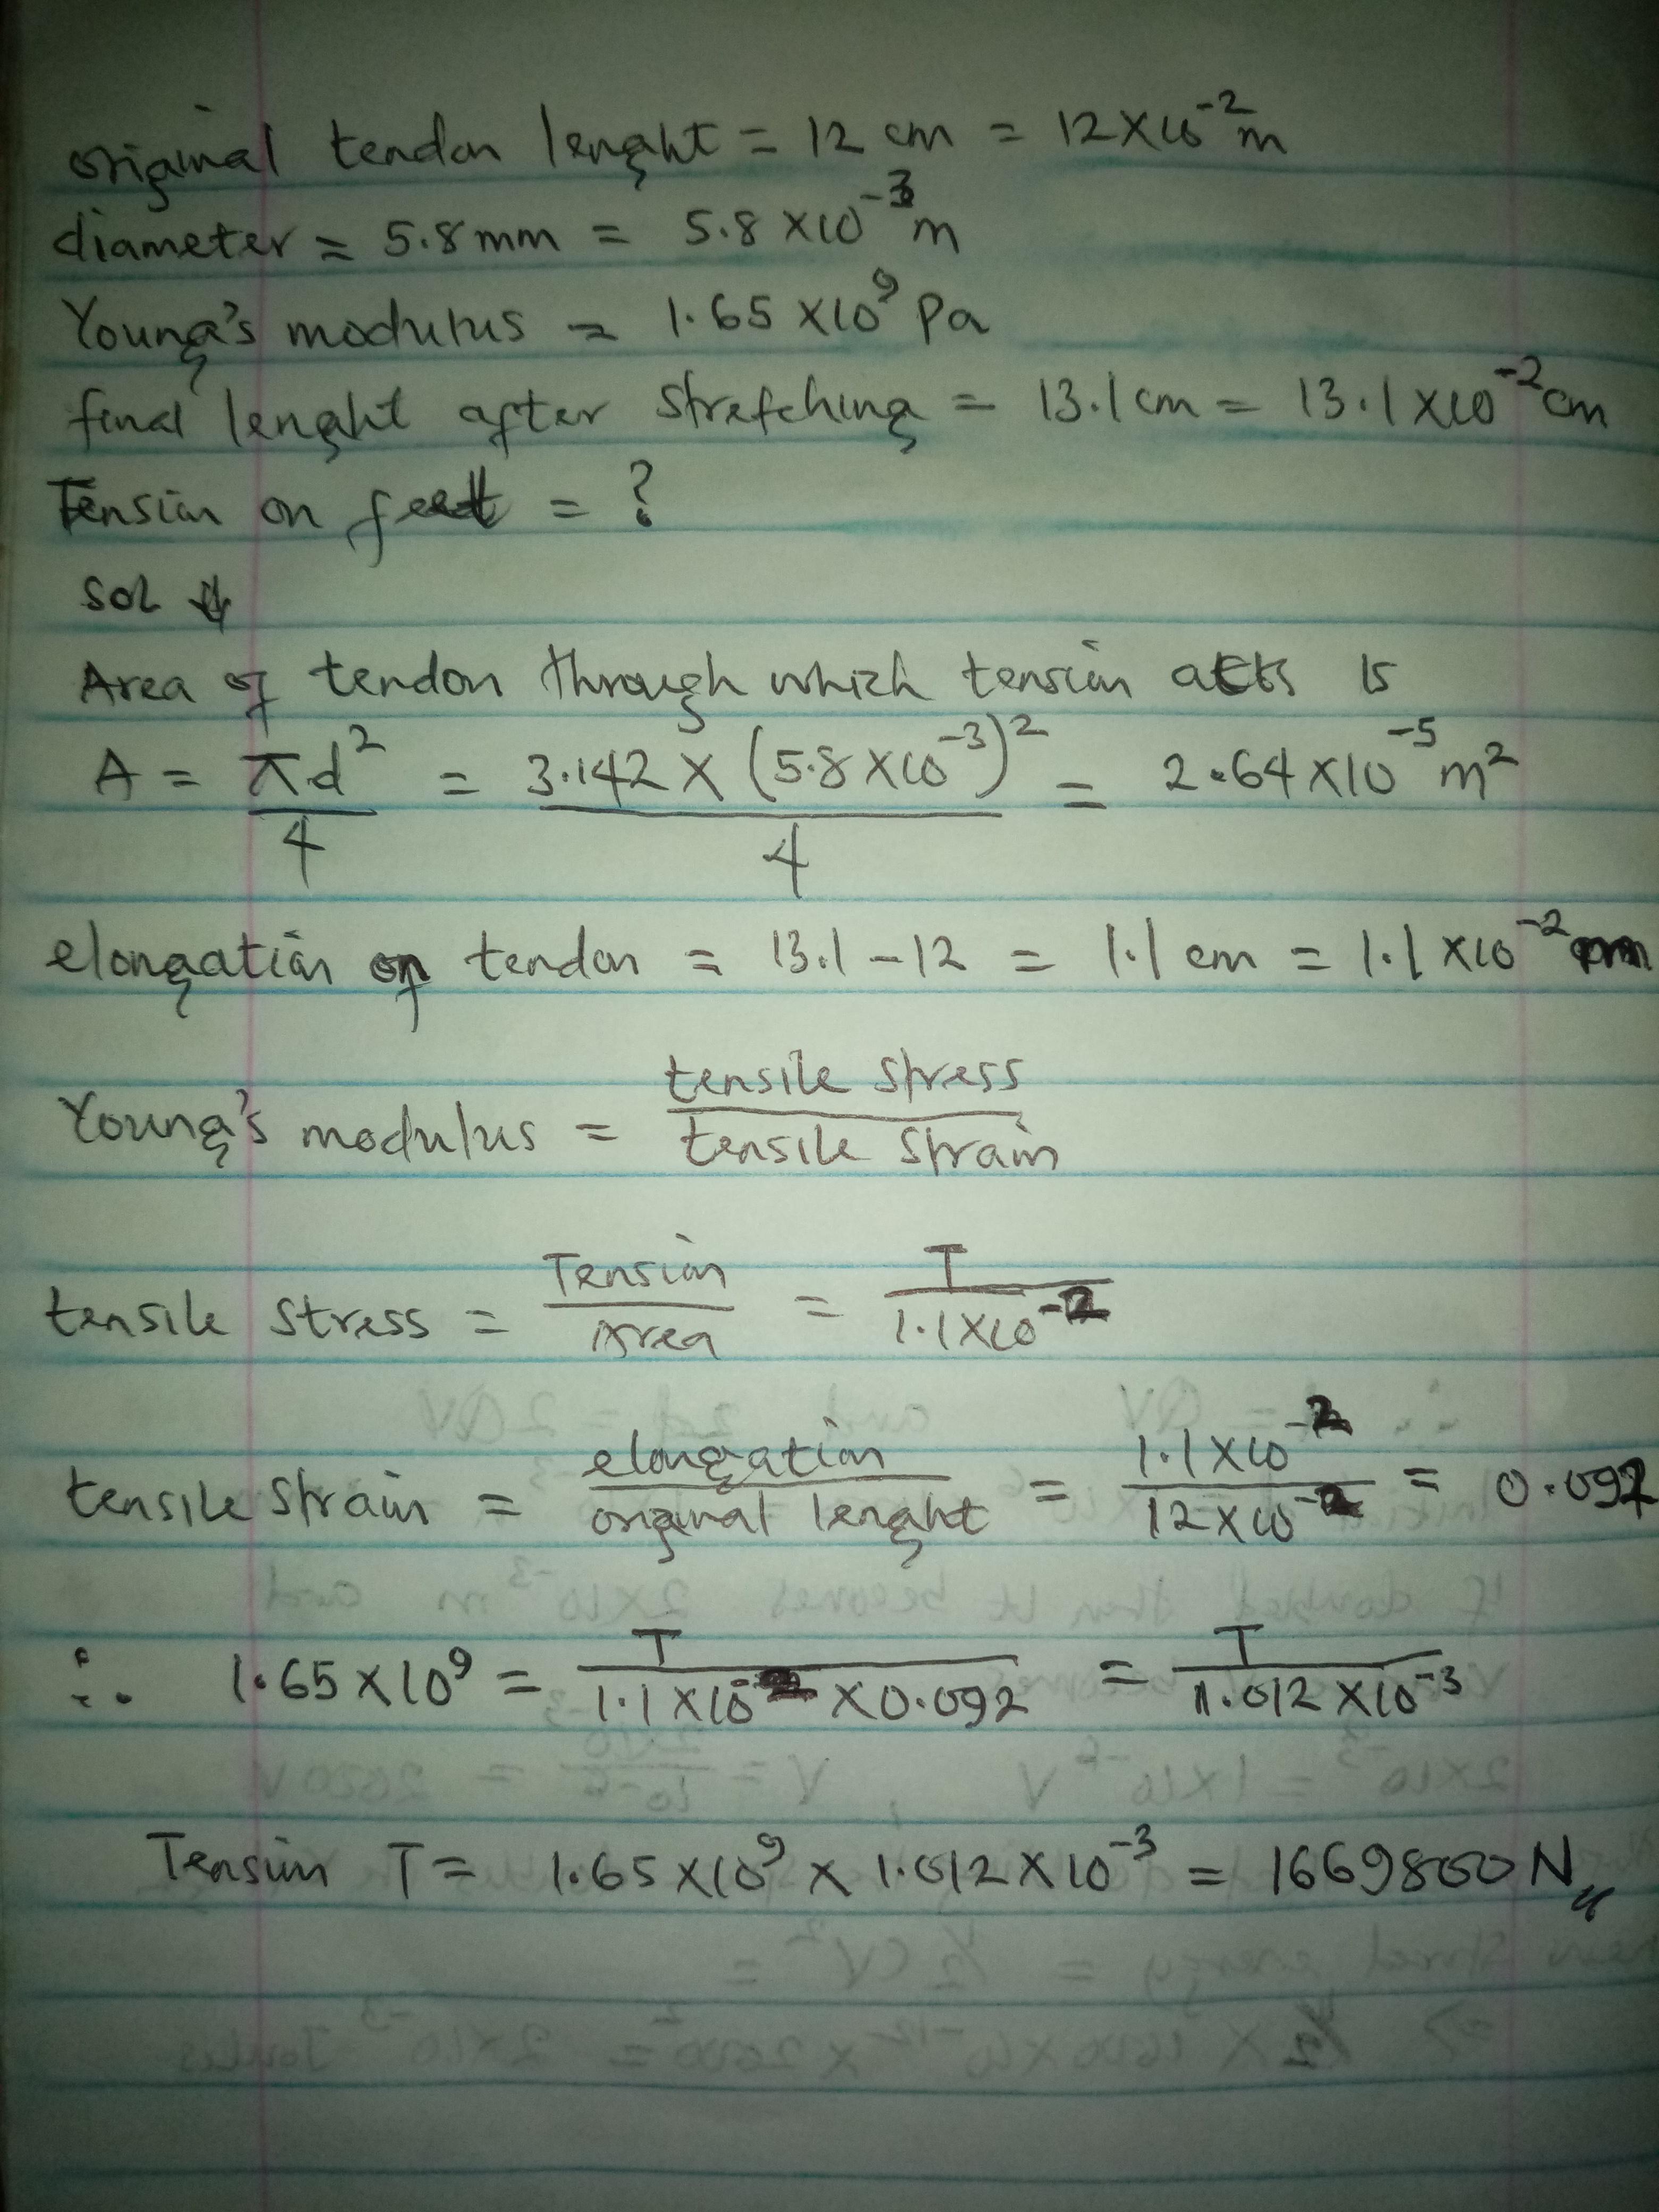 original tendon lenght = 12 cm = 12 × 10⁻² m
diameter = 5.8 mm = 5.8 × 10⁻³ m
Young's modulus = 1.65 × 10⁹ Pa
final lenght after stretching = 13.1 cm = 13.1 × 10⁻² cm
Tension on feet = ?
Sol
Area of tendon through which tension acts is
A = πd²/4 = 3.142 × (5.8 × 10⁻³)²/4 = 2.64 × 10⁻⁵ m²
elongation of tendon = 13.1 - 12 = 1.1 cm = 1.1 × 10⁻² m
Young's modulus = tensile stress/tensile strain
tensile stress = Tension/Area = T/1.1 × 10⁻²
tensile strain = elongation/original lenght = 1.1 × 10⁻²/12 × 10⁻² = 0.092
∴ 1.65 × 10⁹ = T/1.1 × 10⁻² × 0.092 = T/1.012 × 10⁻³
Tension T = 1.65 × 10⁹ × 1.012 × 10⁻³ = 1669800 N